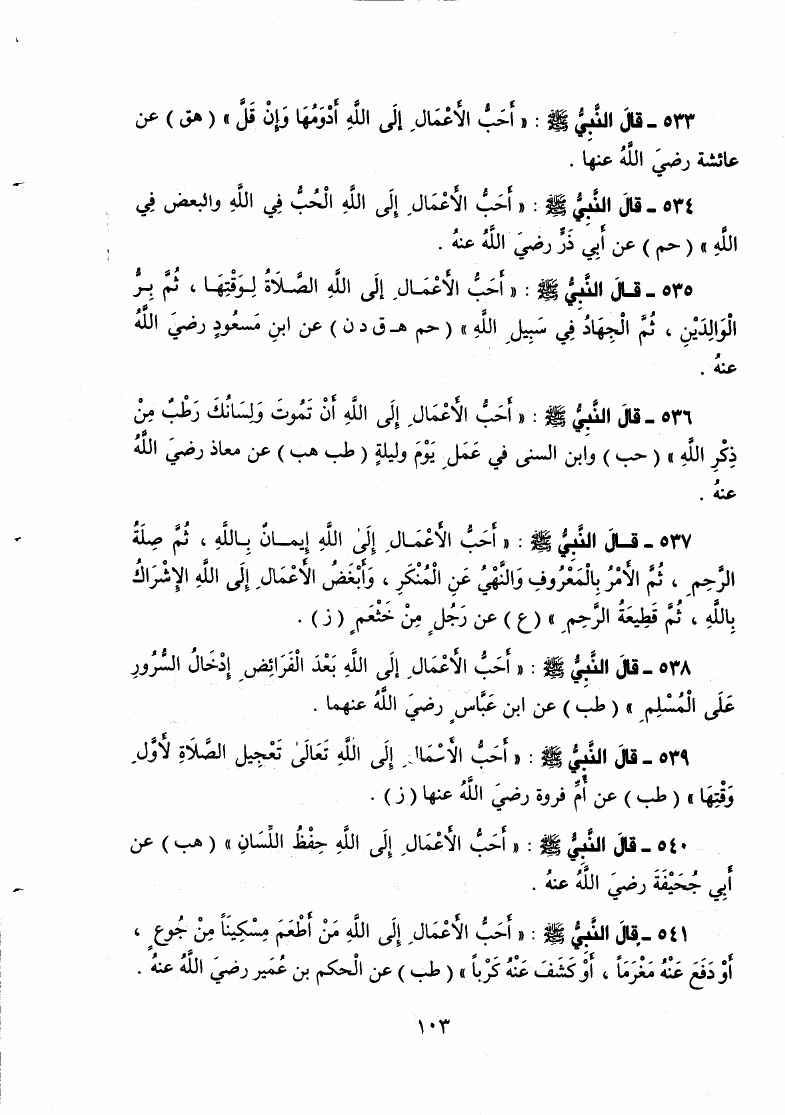 ٥٣٣ ـ قالَ النَّبِيُّ ﷺ : « أَحَبُّ الأَعْمَالِ إِلَى اللَّهِ أَدْوَمُهَا وَإِنْ قَلَّ » ( هق ) عن
عائشة رضيَ اللَّهُ عنها .
٥٣٤ ـ قالَ النَّبِيُّ ﷺ : « أَحَبُّ الأَعْمَالِ إِلَى اللَّهِ الْحُبُّ فِي اللَّهِ والبعض فِي
اللَّهِ » ( حم ) عن أَبِي ذَرٍّ رضيَ اللَّهُ عنهُ .
٥٣٥ ـ قالَ النَّبِيُّ ﷺ : « أَحَبُّ الأَعْمَالِ إِلَى اللَّهِ الصَّلَاةُ لِوَقْتِهَا ، ثُمَّ بِرُّ
الْوَالِدَيْنِ ، ثُمَّ الْجِهَادُ فِي سَبِيلِ اللَّهِ » ( حم هـ ق د ن ) عن ابنِ مَسعُودٍ رضيَ اللَّهُ
عنهُ .
٥٣٦ ـ قالَ النَّبِيُّ ﷺ : « أَحَبُّ الأَعْمَالِ إِلَى اللَّهِ أَنْ تَمُوتَ وَلِسَانُكَ رَطْبٌ مِنْ
ذِكْرِ اللَّهِ » ( حب ) وابن السنى في عَمَلِ يَوْمَ وليلةٍ ( طب هب ) عن معاذ رضيَ اللَّهُ
عنهُ .
٥٣٧ ـ قالَ النَّبِيُّ ﷺ : « أَحَبُّ الأَعْمَالِ إِلَىٰ اللَّهِ إِيمَانٌ بِاللَّهِ ، ثُمَّ صِلَةُ
الرَّحِمِ ، ثُمَّ الأَمْرُ بِالْمَعْرُوفِ وَالنَّهْيُ عَنِ الْمُنْكَرِ ، وَأَبْغَضُ الأَعْمَالِ إِلَى اللَّهِ الإِشْرَاكُ
بِاللَّهِ ، ثُمَّ قَطِيعَةُ الرَّحِمِ » ( ع ) عن رَجُلٍ مِنْ خَثْعَمٍ ( ز ) .
٥٣٨ ـ قالَ النَّبِيُّ ﷺ : « أَحَبُّ الأَعْمَالِ إِلَى اللَّهِ بَعْدَ الْفَرَائِضِ إِدْخَالُ السُّرُورِ
عَلَى الْمُسْلِمِ » ( طب ) عن ابن عَبَّاسٍ رضيَ اللَّهُ عنهما .
٥٣٩ ـ قالَ النَّبِيُّ ﷺ : « أَحَبُّ الأَعْمَالِ إِلَى اللَّهِ تَعَالَىٰ تَعْجِيلُ الصَّلَاةِ لأَوَّلِ
وَقْتِهَا » ( طب ) عن أُمِّ فروة رضيَ اللَّهُ عنها ( ز ) .
٥٤٠ ـ قالَ النَّبِيُّ ﷺ : « أَحَبُّ الأَعْمَالِ إِلَى اللَّهِ حِفْظُ اللِّسَانِ » ( هب ) عن
أَبِي جُحَيْفَةَ رضيَ اللَّهُ عنهُ .
٥٤١ ـ قالَ النَّبِيُّ ﷺ : « أَحَبُّ الأَعْمَالِ إِلَى اللَّهِ مَنْ أَطْعَمَ مِسْكِيناً مِنْ جُوعٍ ،
أَوْ دَفَعَ عَنْهُ مَغْرَماً ، أَوْ كَشَفَ عَنْهُ كَرْباً » ( طب ) عن الحكم بن عُمَيرٍ رضيَ اللَّهُ عنهُ .
١٠٣